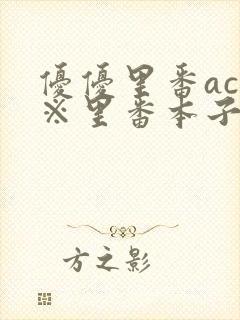 優優里番ac
※里番本子
方之影